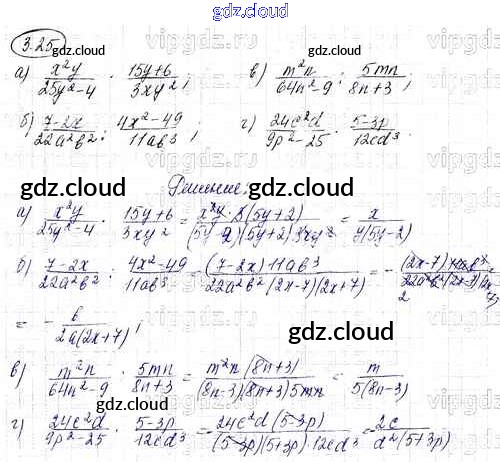 gdz.cloud
3.25
gdz.cloud gdz.cloud
а) x²y/(25y²-4) · (15y+6)/(3xy²); в) m²n/(64n²-9) : 5mn/(8n+3);
б) (7-2x)/(22a²b²) : (4x²-49)/(11ab³); г) 24c²d/(9p²-25) · (5-3p)/(12cd³)
gdz.cloud gdz.cloud
Решение:
а) x²y/(25y²-4) · (15y+6)/(3xy²) = x²y·3(5y+2)/((5y-2)(5y+2)3xy²) = x/(y(5y-2))
б) (7-2x)/(22a²b²) : (4x²-49)/(11ab³) = (7-2x)11ab³/(22a²b²(2x-7)(2x+7)) = -(2x-7)11ab³/(22a²b²(2x-7)(2x+7))
= -b/(2a(2x+7));
gdz.cloud gdz.cloud
в) m²n/(64n²-9) : 5mn/(8n+3) = m²n(8n+3)/((8n-3)(8n+3)5mn) = m/(5(8n-3))
г) 24c²d/(9p²-25) · (5-3p)/(12cd³) = 24c²d(5-3p)/((5-3p)(5+3p)·12cd³) = 2c/(d²(5+3p))
gdz.cloud